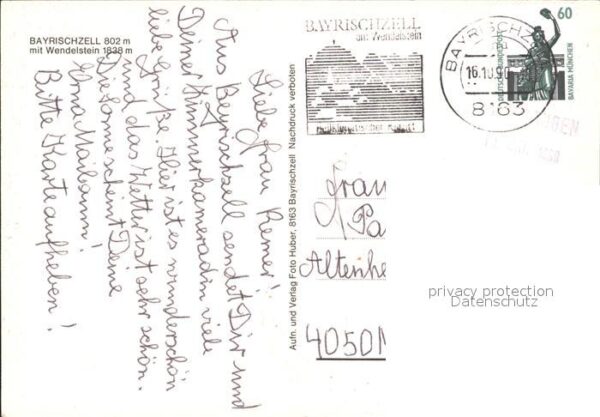 BAYRISCHZELL 802 m
mit Wendelstein 1838 m
Liebe Frau Remer!
Aus Bayrischzell sendet Dir und
Deiner Zimmerkameradin viele
liebe Grüße. Hier ist es wunderschön
und das Wetter ist sehr schön.
Die Sonne scheint Deine
Oma Maibaum!
Bitte Karte aufheben!
Aufn. und Verlag Foto Huber, 8163 Bayrischzell Nachdruck verboten
BAYRISCHZELL
am Wendelstein
BAYRISCHZELL
16.10.90
8163
60
DEUTSCHE BUNDESPOST
BAVARIA MÜNCHEN
Frau
Pa
Altenhe
4050 M
privacy protection
Datenschutz